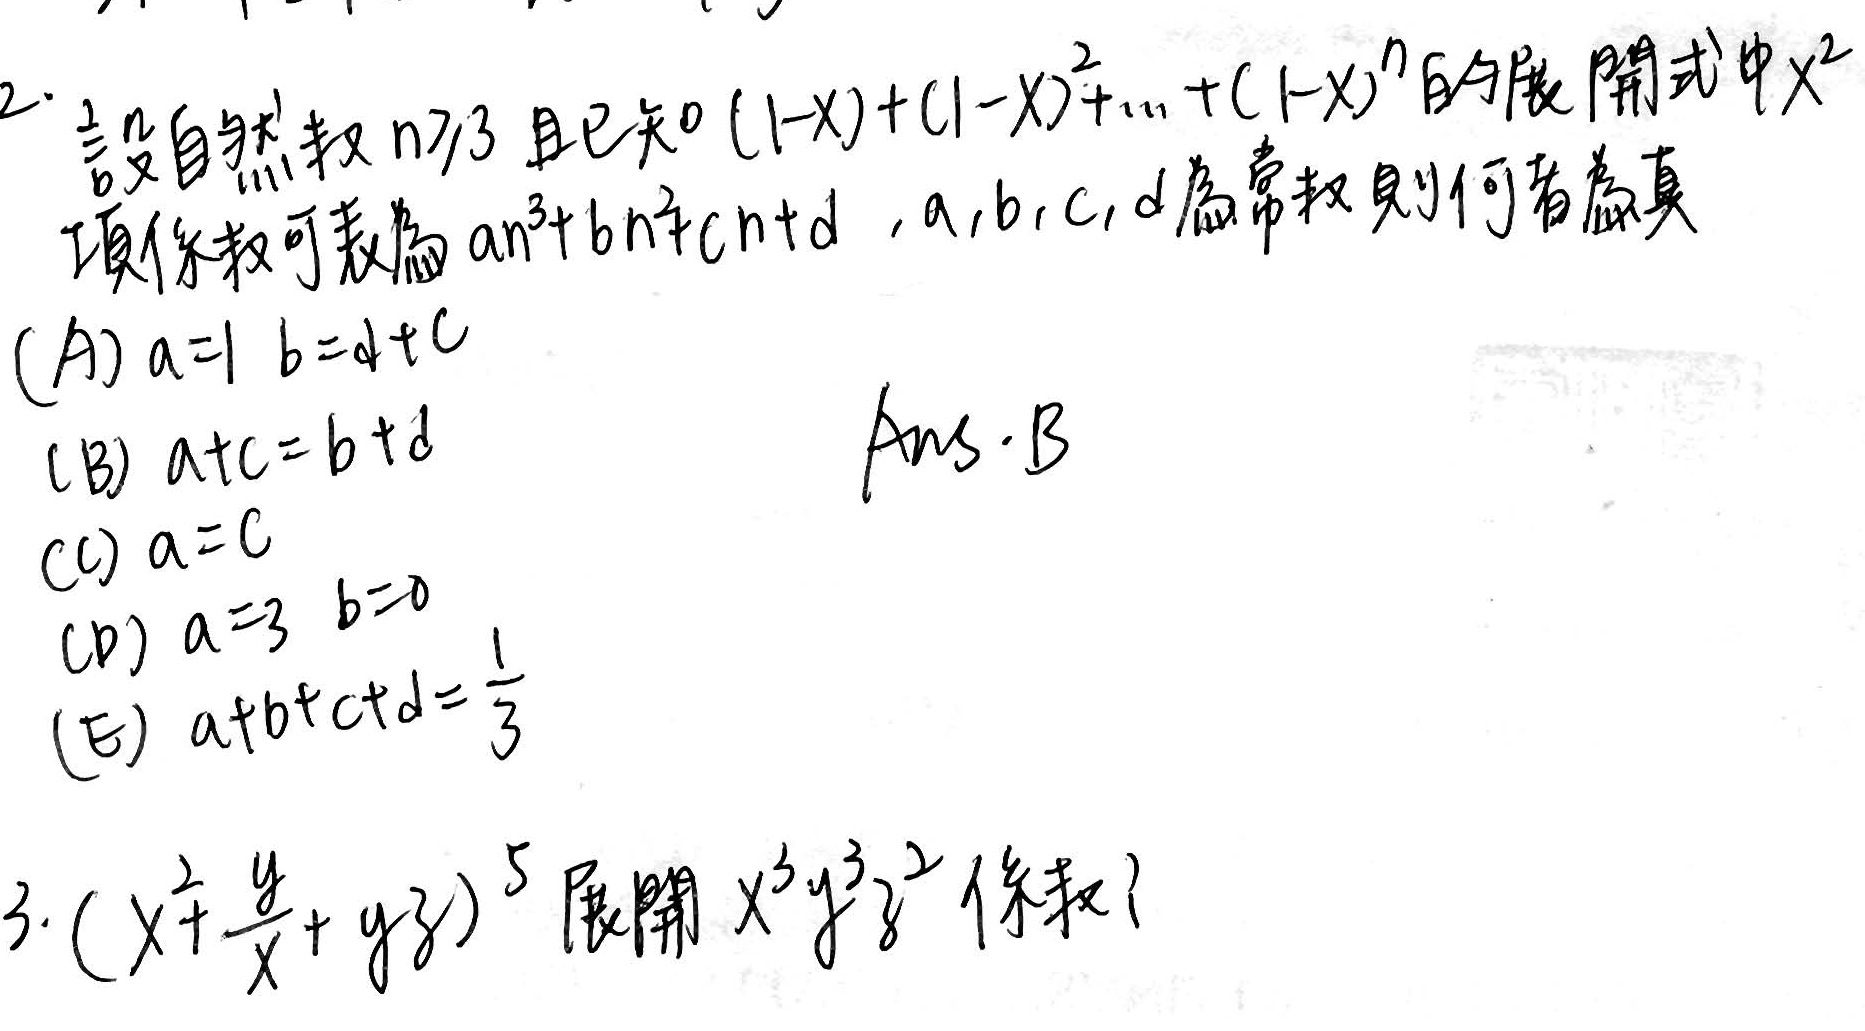 2. 設自然数 n≥3 且已知 (1-x)+(1-x)²+…+(1-x)ⁿ的展開式中x²
項係数可表為 an³+bn²+cn+d , a, b, c, d為常数則何者為真
(A) a=1 b=d+c
(B) a+c=b+d
Ans. B
(C) a=c
(D) a=3 b=0
(E) a+b+c+d=1/3
3. (x²+y/x+yz)⁵ 展開 x³y³z² 係数?